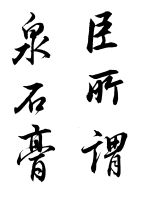 臣所謂
泉石膏